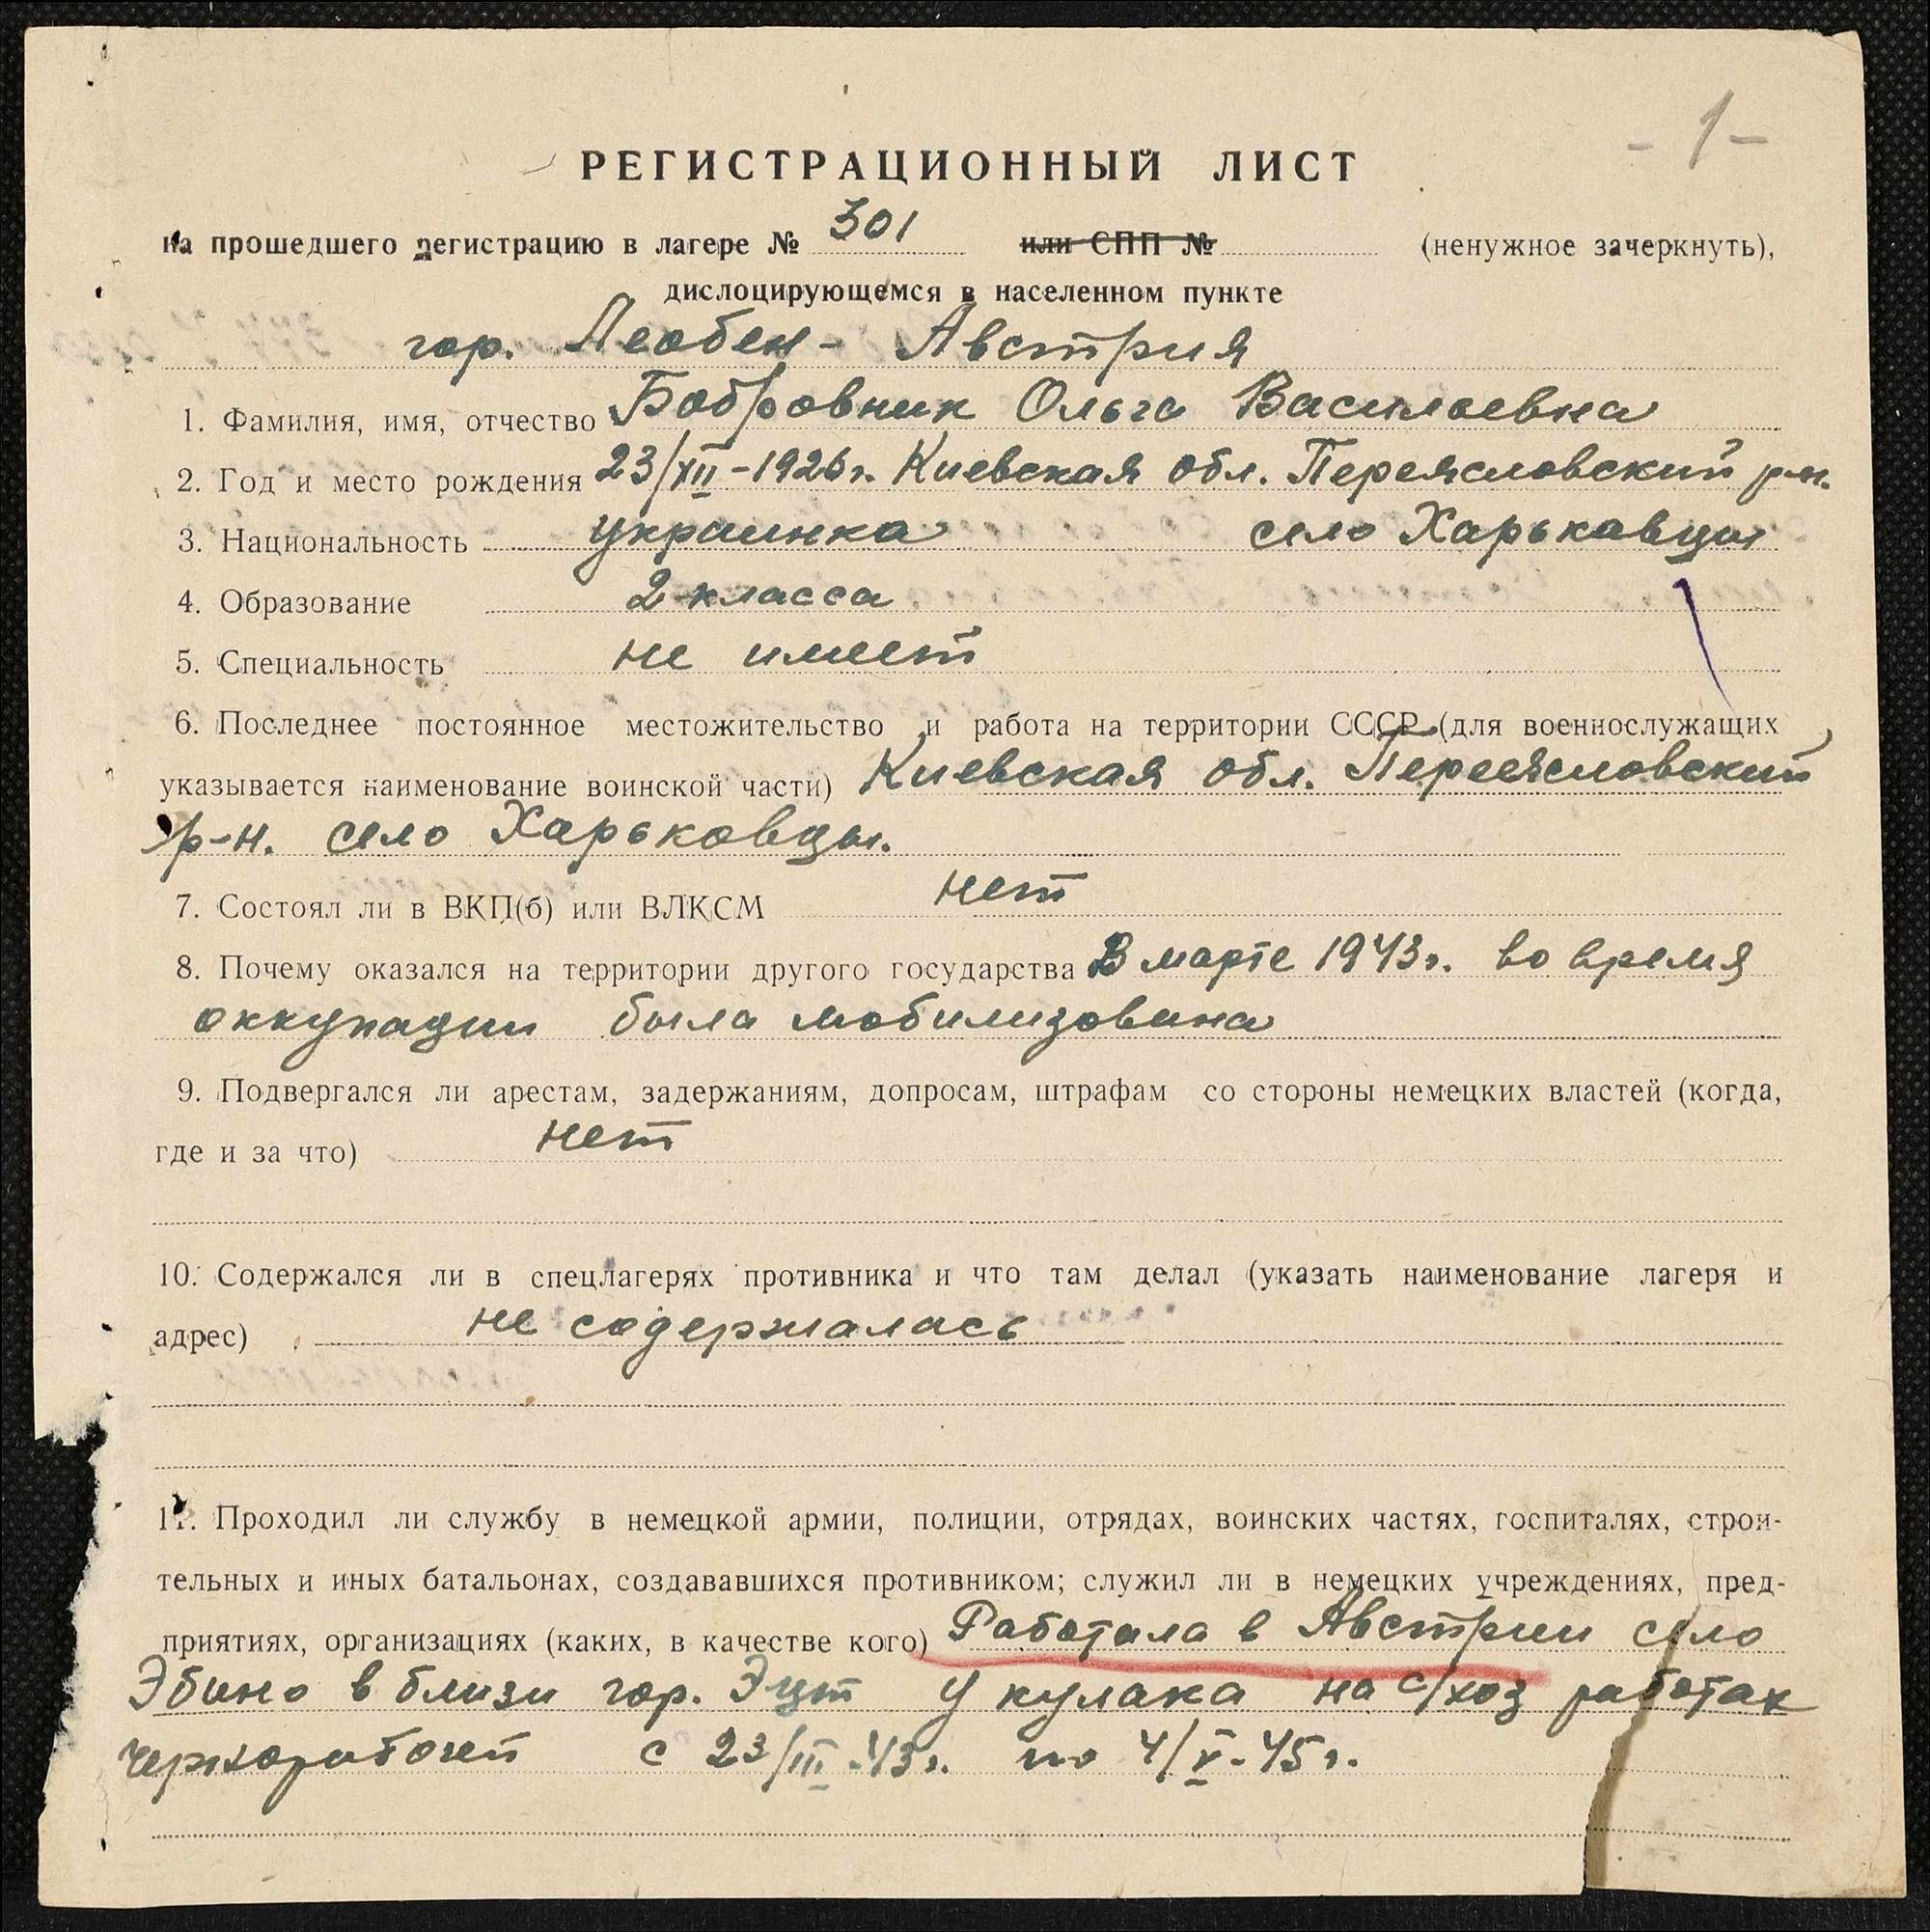 - 1 -
РЕГИСТРАЦИОННЫЙ ЛИСТ
на прошедшего регистрацию в лагере № 301 или СПП № (ненужное зачеркнуть),
дислоцирующемся в населенном пункте
гор. Леобен - Австрия
1. Фамилия, имя, отчество Бобровник Ольга Васильевна
2. Год и место рождения 23/XII-1926г. Киевская обл. Переясловский р-н.
3. Национальность украинка село Харьковцы
4. Образование 2 класса
5. Специальность не имеет
6. Последнее постоянное местожительство и работа на территории СССР (для военнослужащих
указывается наименование воинской части) Киевская обл. Переясловский
р-н. село Харьковцы.
7. Состоял ли в ВКП(б) или ВЛКСМ нет
8. Почему оказался на территории другого государства В марте 1943г. во время
оккупации была мобилизована
9. Подвергался ли арестам, задержаниям, допросам, штрафам со стороны немецких властей (когда,
где и за что) нет
10. Содержался ли в спецлагерях противника и что там делал (указать наименование лагеря и
адрес) не содержалась
11. Проходил ли службу в немецкой армии, полиции, отрядах, воинских частях, госпиталях, строи-
тельных и иных батальонах, создававшихся противником; служил ли в немецких учреждениях, пред-
приятиях, организациях (каких, в качестве кого) Работала в Австрии село
в близи гор. у кулака на с/хоз работах
Чернорабочей с 23/III-43г. по 4/V-45г.